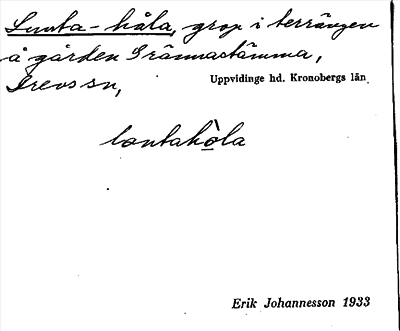 Lunta-håla, grop i terrängen
å gården Grännastämma,
Drevs sn,
Uppvidinge hd. Kronobergs län
lontahòla
Erik Johannesson 1933